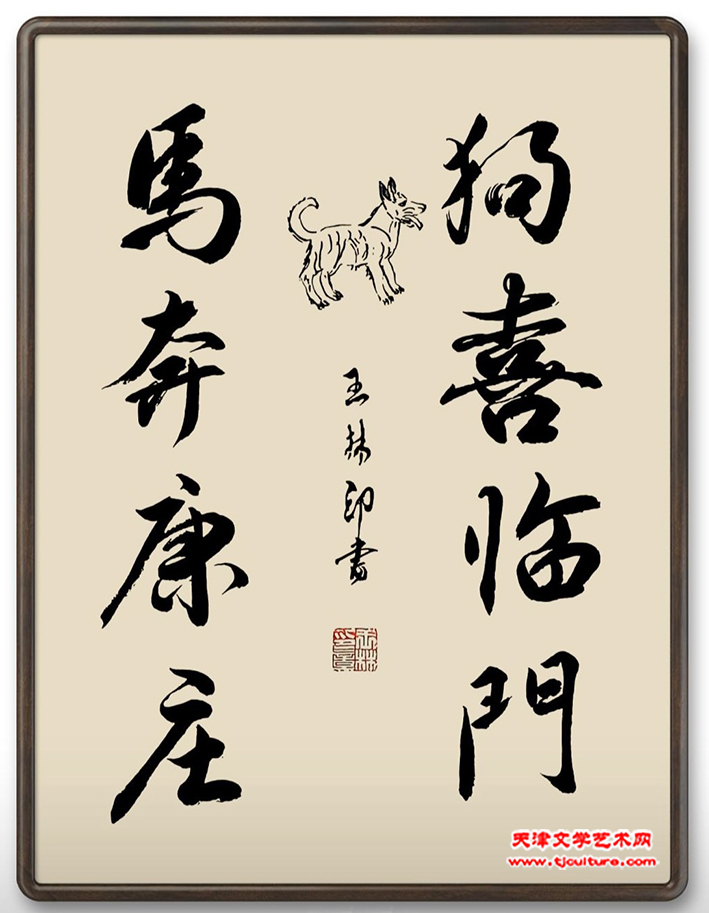 狗喜临門
馬奔康庄
王林印書
天津文学艺术网
www.tjculture.com